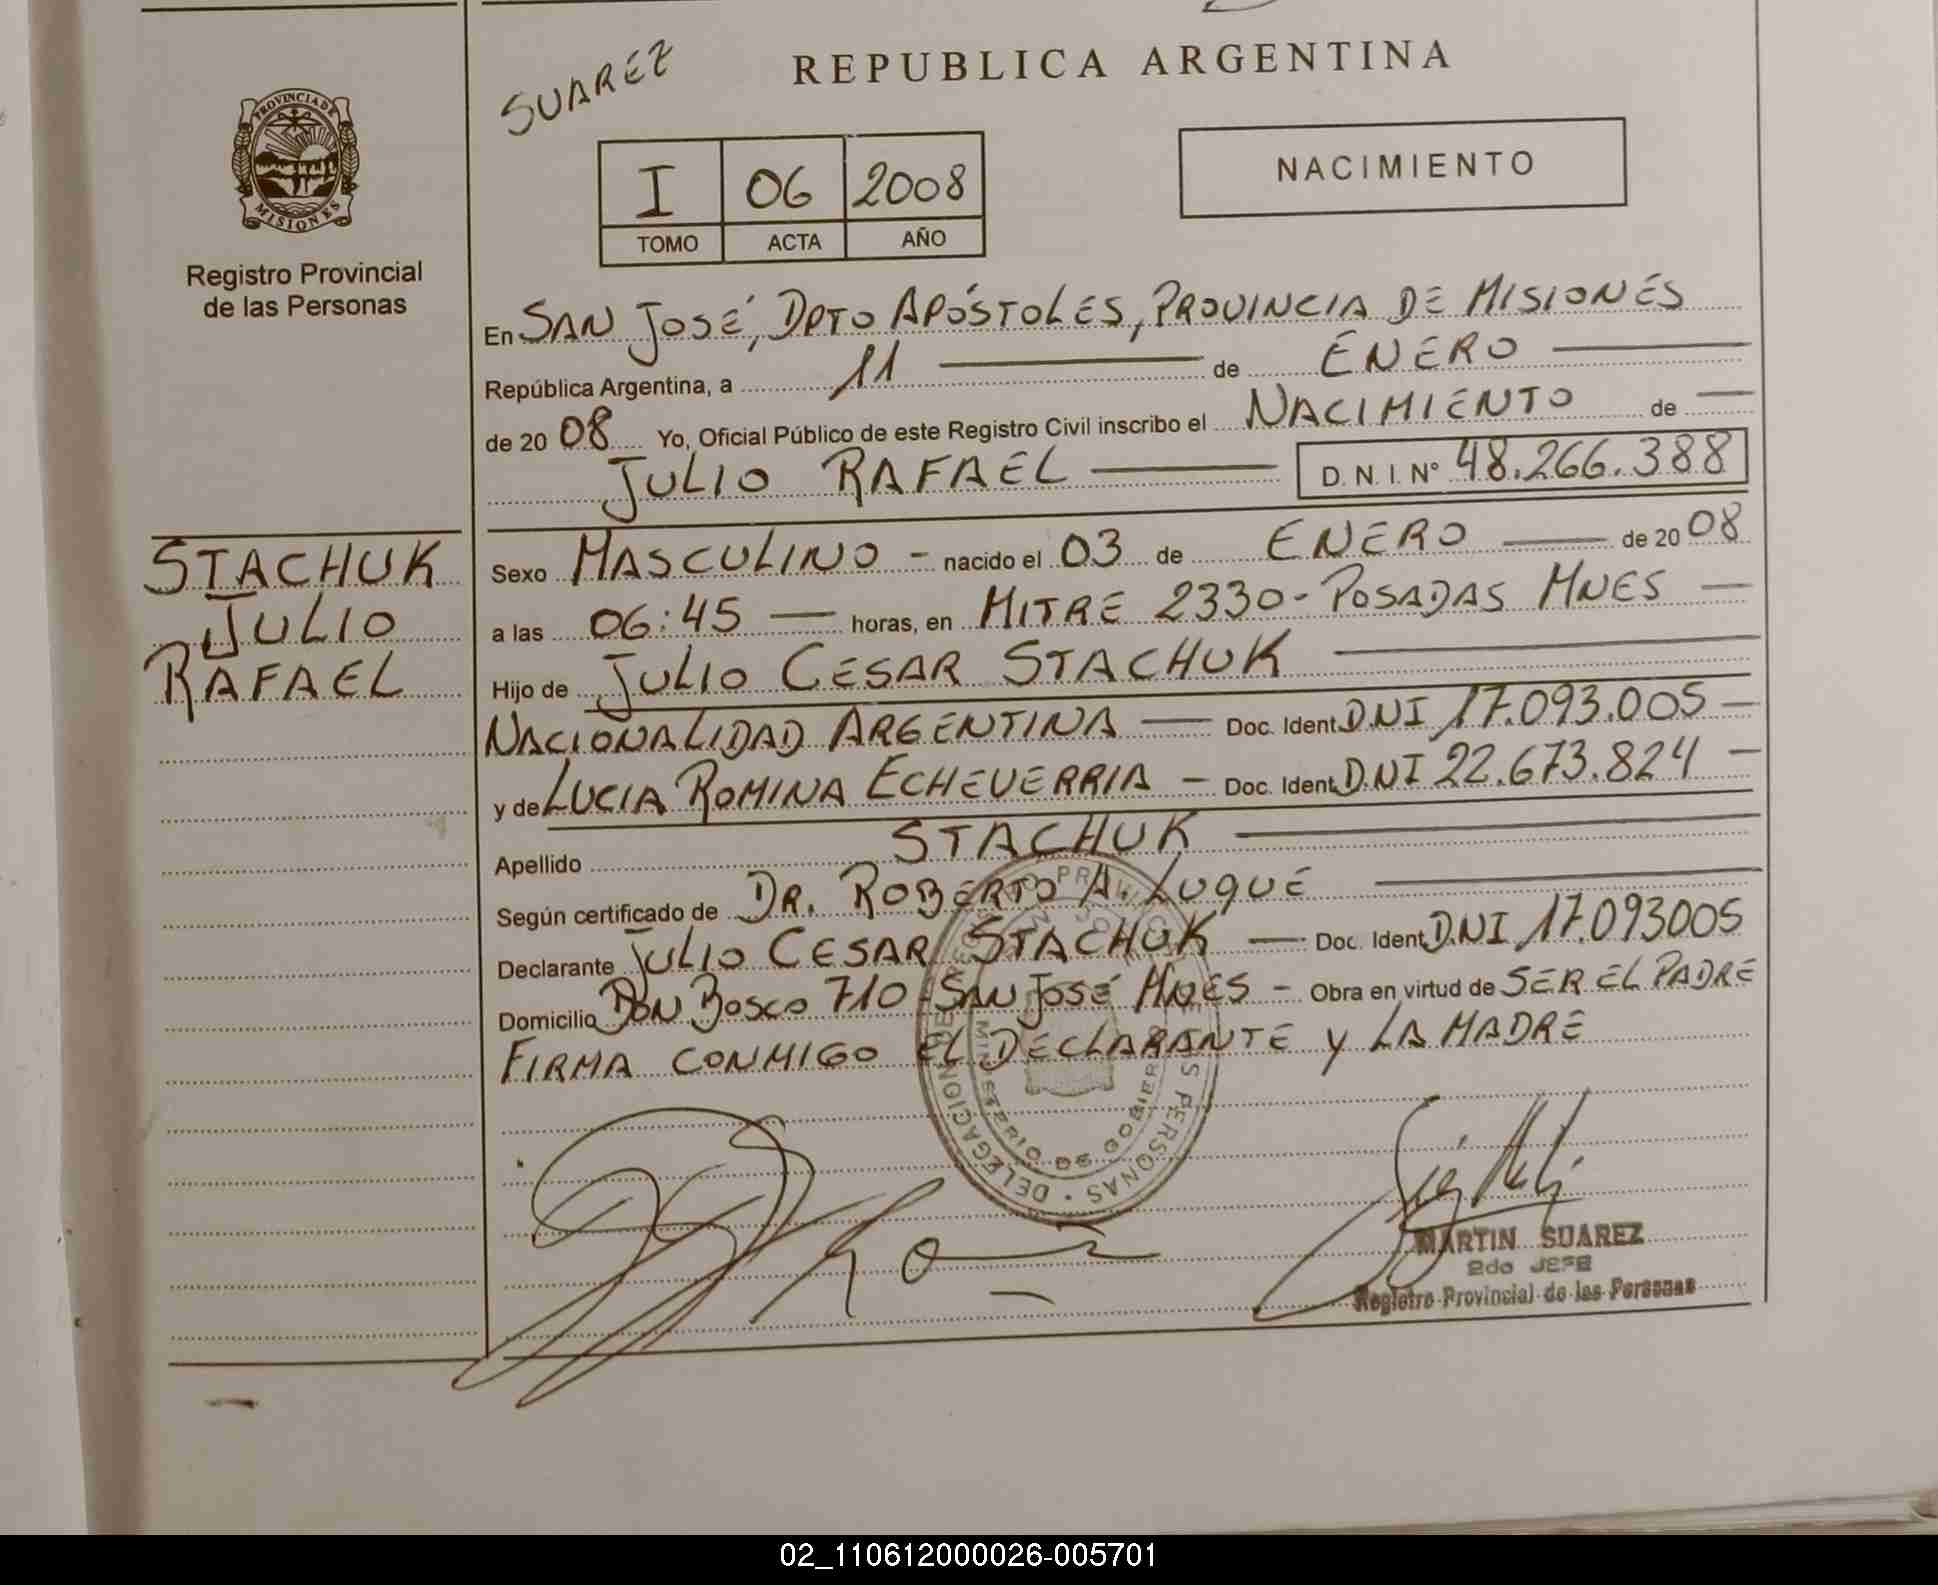 SUAREZ
REPUBLICA ARGENTINA
PROVINCIA DE
MISIONES
Registro Provincial
de las Personas
I 06 2008
TOMO ACTA AÑO
NACIMIENTO
En SAN JOSÉ, DPTO APÓSTOLES, PROVINCIA DE MISIONES
República Argentina, a 11 de ENERO
de 20 08 Yo, Oficial Público de este Registro Civil inscribo el NACIMIENTO de
JULIO RAFAEL D. N. I. Nº 48.266.388
STACHUK
JULIO
RAFAEL
Sexo MASCULINO - nacido el 03 de ENERO de 20 08
a las 06:45 horas, en MITRE 2330 - POSADAS MNES
Hijo de JULIO CESAR STACHUK
NACIONALIDAD ARGENTINA Doc. Ident DNI 17.093.005
y de LUCIA ROMINA ECHEVERRIA - Doc. Ident DNI 22.673.824
Apellido STACHUK
Según certificado de DR. ROBERTO A. LUQUE
Declarante JULIO CESAR STACHUK Doc. Ident DNI 17.093005
Domicilio DON BOSCO 710 - SAN JOSÉ MNES - Obra en virtud de SER EL PADRE
FIRMA CONMIGO EL DECLARANTE Y LA MADRE
MINISTERIO DE GOBIER
PERSONAS · DELEGACION
MARTIN SUAREZ
2do JEFE
Registro Provincial de las Personas
02_110612000026-005701